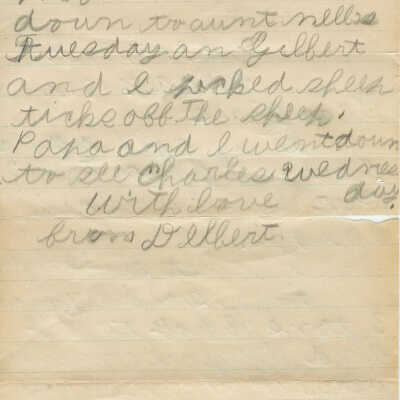 down to aunt nells
Tuesday an Gilbert
and I picked sheep
ticks off The sheep.
Papa and I went down
to see Charles wednes
day.
With love
from Delbert